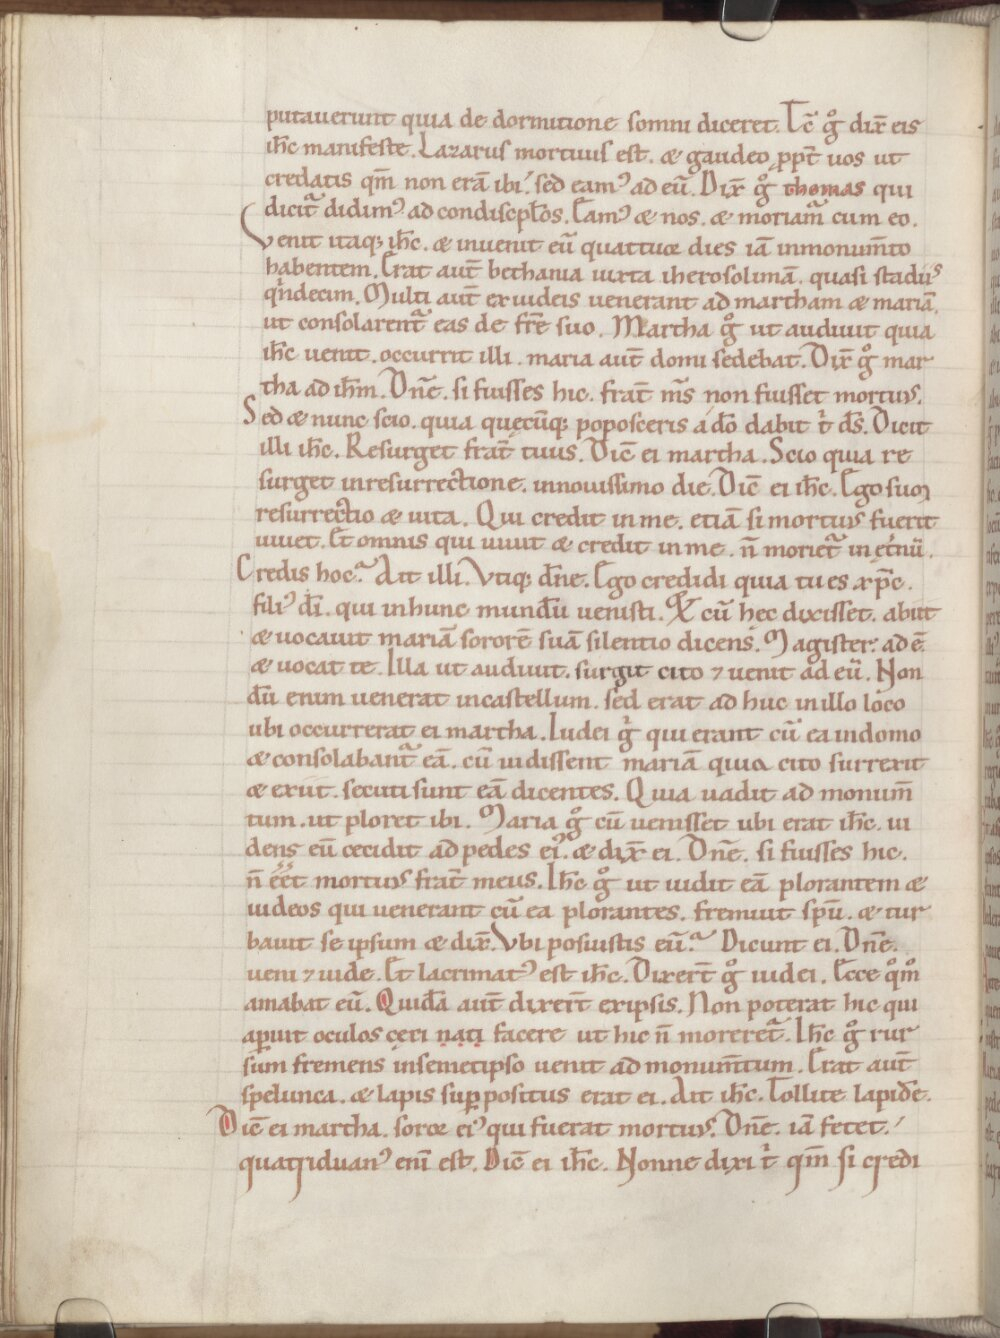 putauerunt quia de dormitione somni diceret. Tc̄ gͦ dix̄ eis
ih̄c manifeste. Lazarus mortuus est. & gaudeo ꝓpt̄ uos ut
credatis qm̄ non erā ibi. sed eamꝰ ad eū. Dix̄ gͦ thomas qui
dicit᷑ didimꝰ ad condiscipl̄os. Eamꝰ & nos. & moriam᷑ cum eo.
Venit itaq; ih̄c. & inuenit eū quattuor dies iā inmonum̄to
habentem. Erat aut̄ bethania iuxta iherosolimā. quasi stadiis
qͥndecim. Multi aut̄ ex iudeis uenerant ad martham & mariā.
ut consolarent᷑ eas de fr̄e suo. Martha gͦ ut audiuit quia
ih̄c uenit. occurrit illi. maria aut̄ domi sedebat. Dix̄ gͦ mar
tha ad ih̄m. Dn̄e. si fuisses hic. frat̄ m̄s non fuisset mortuꝰ.
Sed & nunc scio. quia quęcūq; poposceris a dō dabit tͥ d̄s. Dicit
illi ih̄c. Resurget frat̄ tuus. Dic̄ ei martha. Scio quia re
surget inresurrectione. innouissimo die. Dic̄ ei ih̄c. Ego sum
resurrectio & uita. Qui credit inme. etiā si mortuꝰ fuerit
uiuet. Et omnis qui uiuit & credit inme. n̄ moriet᷑ in ęt̄nū.
Credis hoc? Ait illi. Vtiq; dn̄e. Ego credidi quia tu es xp̄c.
filiꝰ dī. qui inhunc mundū uenisti. Et cū hęc dixisset. abiit
& uocauit mariā sororē suā silentio dicens. Magister adē.
& uocat te. Illa ut audiuit. surgit cito ⁊ uenit ad eū. Non
dū enim uenerat incastellum. sed erat ad huc inillo loco
ubi occurrerat ei martha. Iudei gͥ qui erant cū ea indomo
& consolabant᷑ eā. cū uidissent mariā quia cito surrexit
& exiit. secuti sunt eā dicentes. Quia uadit ad monum̄
tum. ut ploret ibi. Maria gͦ cū uenisset ubi erat ih̄c. ui
dens eū cecidit ad pedes eiꝰ. & dix̄ ei. Dn̄e. si fuisses hic.
n̄ eēt mortuꝰ frat̄ meus. Ih̄c gͦ ut uidit eā plorantem &
iudeos qui uenerant cū ea plorantes. fremuit sp̄u. & tur
bauit se ipsum & dix̄. Vbi posuistis eū? Dicunt ei. Dn̄e.
ueni ⁊ uide. Et lacrimatꝰ est ih̄c. Dixer̄t gͦ iudei. Ecce qͦmͦ
amabat eū. Quidā aut̄ dixer̄t exipsis. Non poterat hic qui
aꝑuit oculos cęci nati facere ut hic n̄ moreret᷑. Ih̄c gͦ rur
sum fremens insemetipso uenit ad monum̄tum. Erat aut̄
spelunca. & lapis suꝑpositus erat ei. Ait ih̄c. Tollite lapidē.
Dic̄ ei martha. soror eiꝰ qui fuerat mortuꝰ. Dn̄e. iā fetet.
quatriduanꝰ enī est. Dic̄ ei ih̄c. Nonne dixi tͥ qm̄ si credi